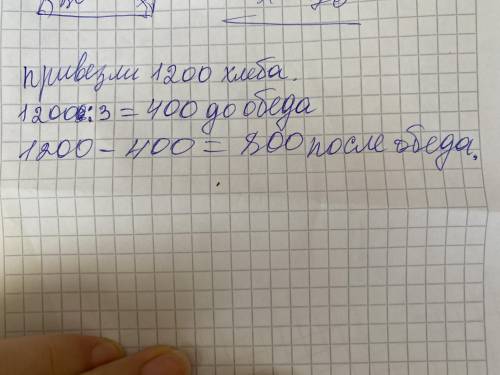 привезли 1200 хлеба.
1200:3 = 400 до обеда
1200 - 400 = 800 после обеда.